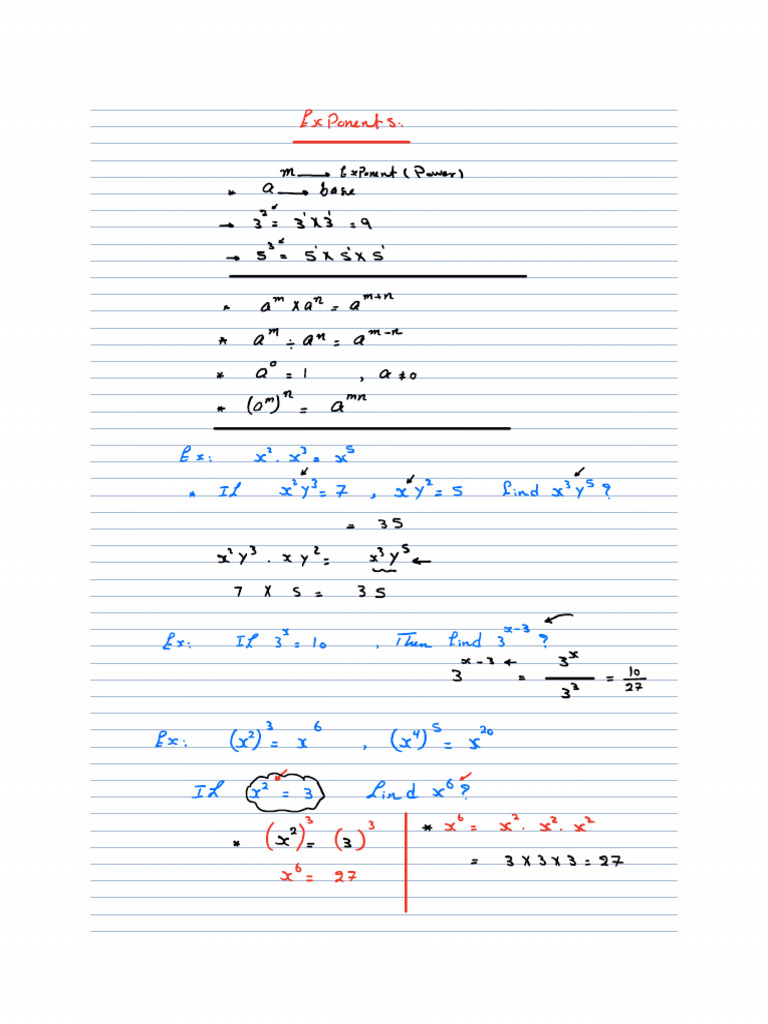 Exponents:
m → Exponent (Power)
* a → base
→ 3² = 3¹ x 3¹ = 9
→ 5³ = 5¹ x 5¹ x 5¹
* aᵐ x aⁿ = aᵐ⁺ⁿ
* aᵐ ÷ aⁿ = aᵐ⁻ⁿ
* a⁰ = 1 , a ≠ 0
* (aᵐ)ⁿ = aᵐⁿ
Ex: x² . x³ = x⁵
* If x²y³ = 7 , xy² = 5 find x³y⁵?
= 35
x²y³ . xy² = x³y⁵ ←
7 x 5 = 35
Ex: If 3ˣ = 10 , Then find 3ˣ⁻³?
3ˣ⁻³ ← = 3ˣ/3³ = 10/27
Ex: (x²)³ = x⁶ , (x⁴)⁵ = x²⁰
If x² = 3 find x⁶?
* (x²)³ = (3)³
x⁶ = 27
* x⁶ = x² . x² . x²
= 3 x 3 x 3 = 27